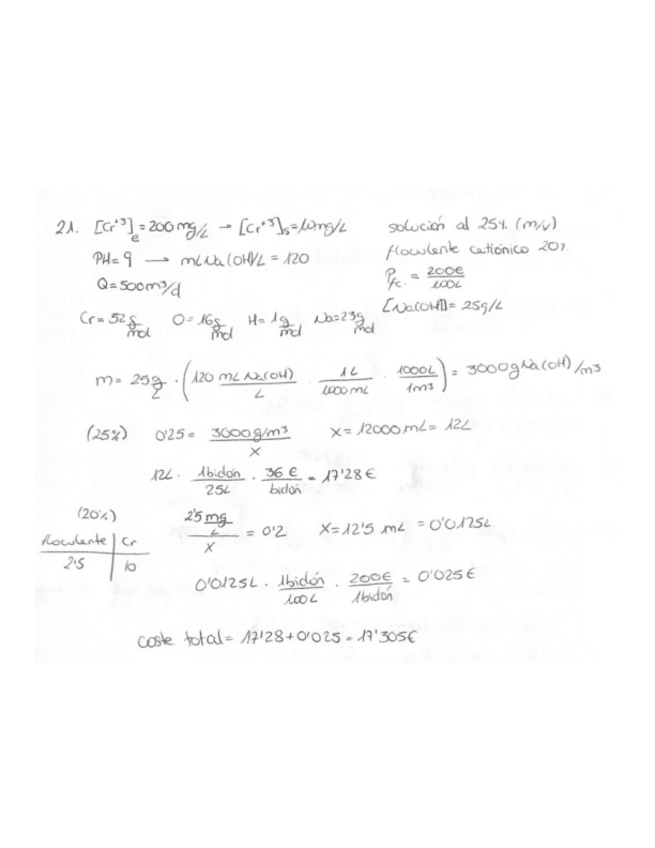 21. [Cr⁺³]e = 200 mg/L → [Cr⁺³]s = 10 mg/L solución al 25% (m/v)
PH = 9 → mL Na(OH)/L = 120 floculente catiónico 20%
Q = 500 m³/d Pfc. = 200€/100L
[Na(OH)] = 25g/L
Cr = 52 g/mol O = 16 g/mol H = 1 g/mol Na = 23 g/mol
m = 25 g/L · (120 mL Na(OH)/L · 1L/1000 mL · 1000L/1m³) = 3000 g Na(OH)/m3
(25%) 0'25 = 3000 g/m³ / X X = 12000 mL = 12L
12L · 1bidón/25L · 36 €/bidón = 17'28 €
(20%) 2'5 mg/L / X = 0'2 X = 12'5 mL = 0'0125L
Floculente | Cr
2'5 | 10
0'0125L · 1bidón/100L · 200€/1bidón = 0'025 €
coste total = 17'28 + 0'025 = 17'305€